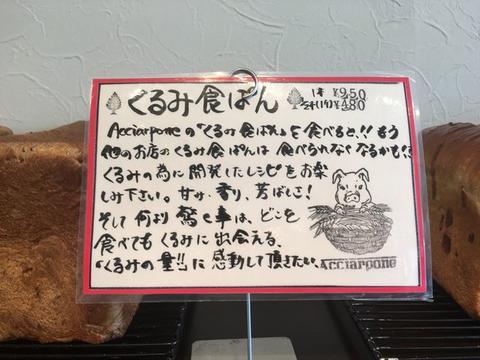 くるみ食ぱん
1本 ¥950
5才(1/2) ¥480
Acciarponeの「くるみ食ぱん」を食べると!!もう
他のお店のくるみ食ぱんは食べられなくなるかも!!
くるみの為に開発したレシピをお楽
しみ下さい。甘み、香り、芳ばしさ!
そして何より驚く事は、どこを
食べてもくるみに出会える、
"くるみの量!!"に感動して頂きたい。
Acciarpone